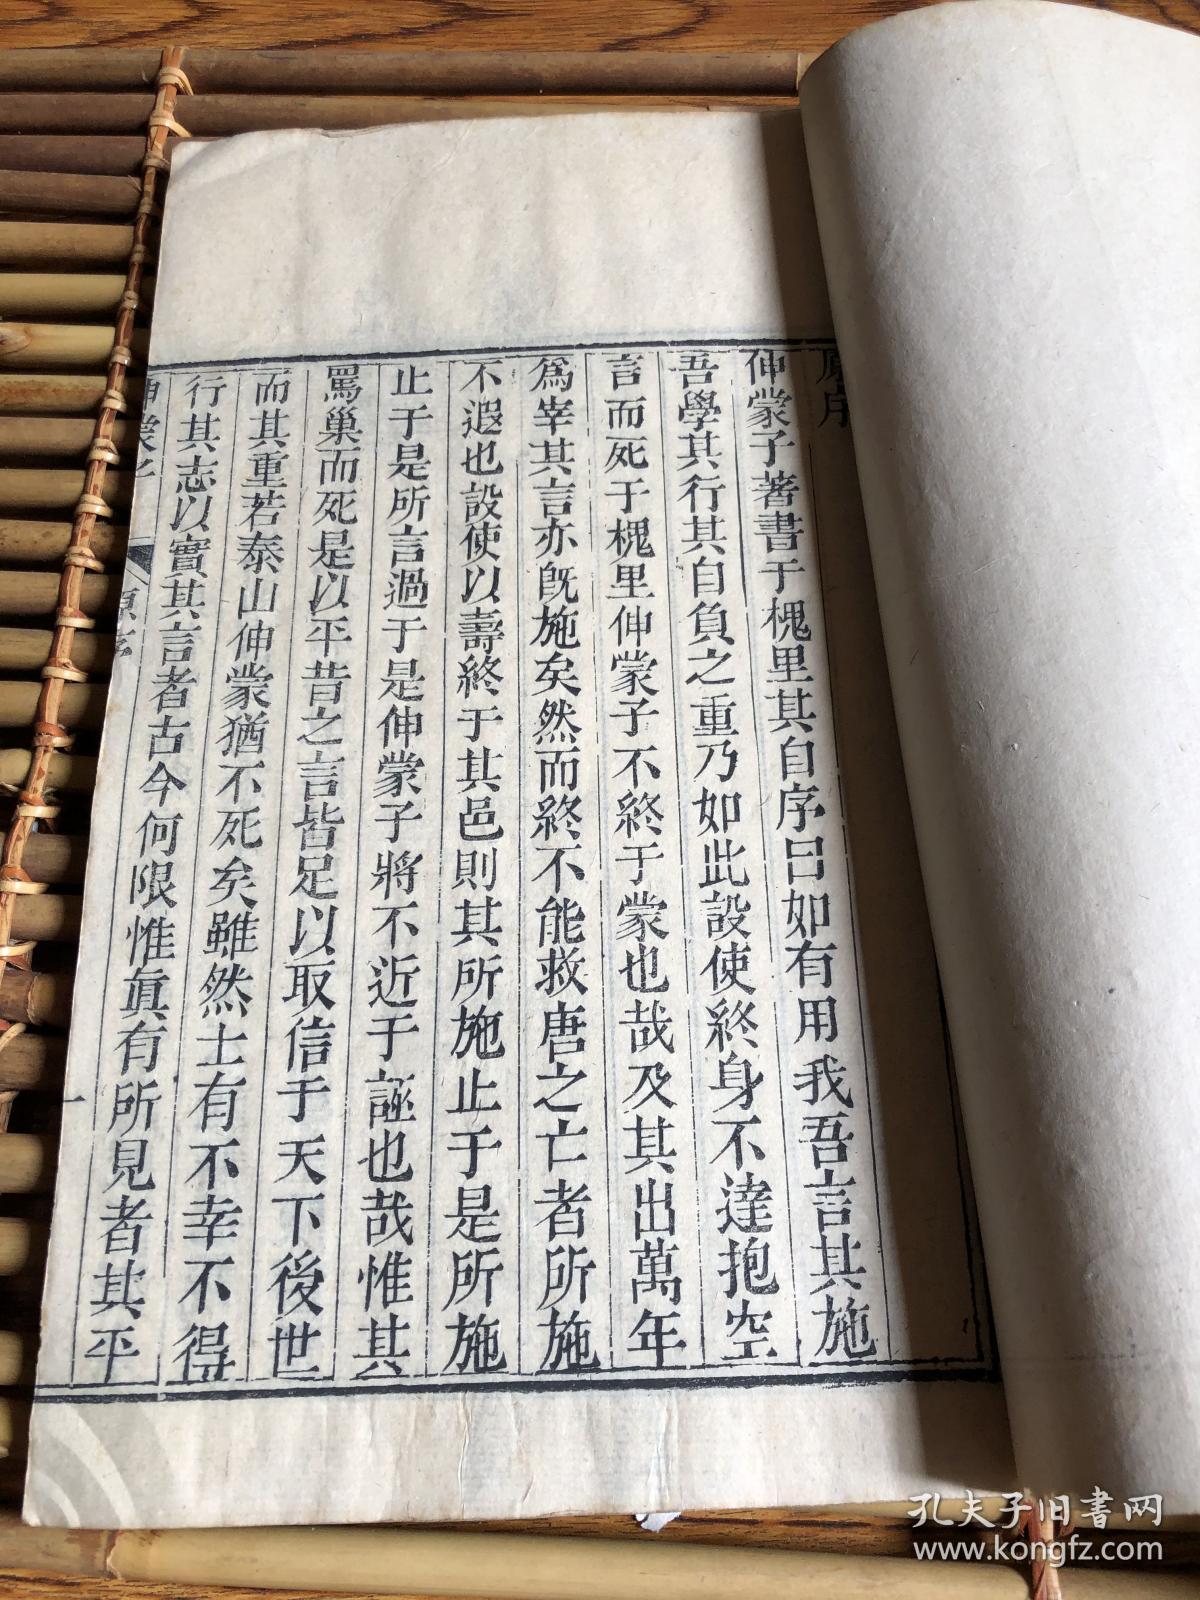 原序
伸蒙子著書于槐里其自序曰如有用我吾言其施
吾學其行其自負之重乃如此設使終身不達抱空
言而死于槐里伸蒙子不終于蒙也哉及其出萬年
爲宰其言亦旣施矣然而終不能救唐之亡者所施
不遐也設使以壽終于其邑則其所施止于是所施
止于是所言過于是伸蒙子將不近于誣也哉惟其
罵巢而死是以平昔之言皆足以取信于天下後世
而其重若泰山伸蒙猶不死矣雖然士有不幸不得
行其志以實其言者古今何限惟眞有所見者其平
伸蒙子 原序 一
孔夫子旧书网
www.kongfz.com